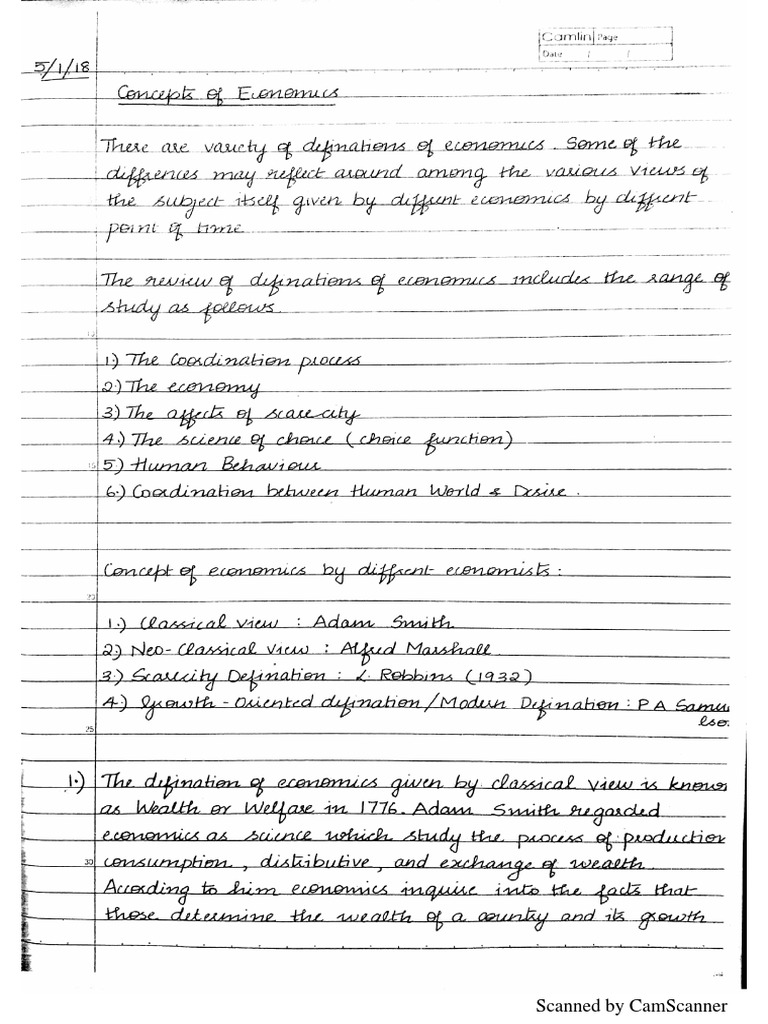 Camlin Page
Date / /
5/1/18
Concepts of Economics
There are variety of definations of economics. Some of the
diffrences may reflect around among the various views of
the subject itself given by diffrent economics by diffrent
point of time
The review of definations of economics includes the range of
study as follows.
10
1.) The Coordination process
2.) The economy
3.) The affects of scarecity
4.) The science of choice (choice function)
15 5.) Human Behaviour
6.) Coordination between Human World & Desire.
Concept of economics by diffrent economists:
20
1.) Classical view : Adam Smith
2.) Neo-Classical view : Alfred Marshall
3.) Scarecity Defination : L. Robbins (1932)
4.) Growth-Oriented defination/Modern Defination : P A Samu
25 lso.
1.) The defination of economics given by classical view is known
as Wealth or Welfare in 1776. Adam Smith regarded
economics as science which study the process of production
30 consumption, distributive, and exchange of wealth.
According to him economics inquire into the facts that
those determine the wealth of a country and its growth
Scanned by CamScanner